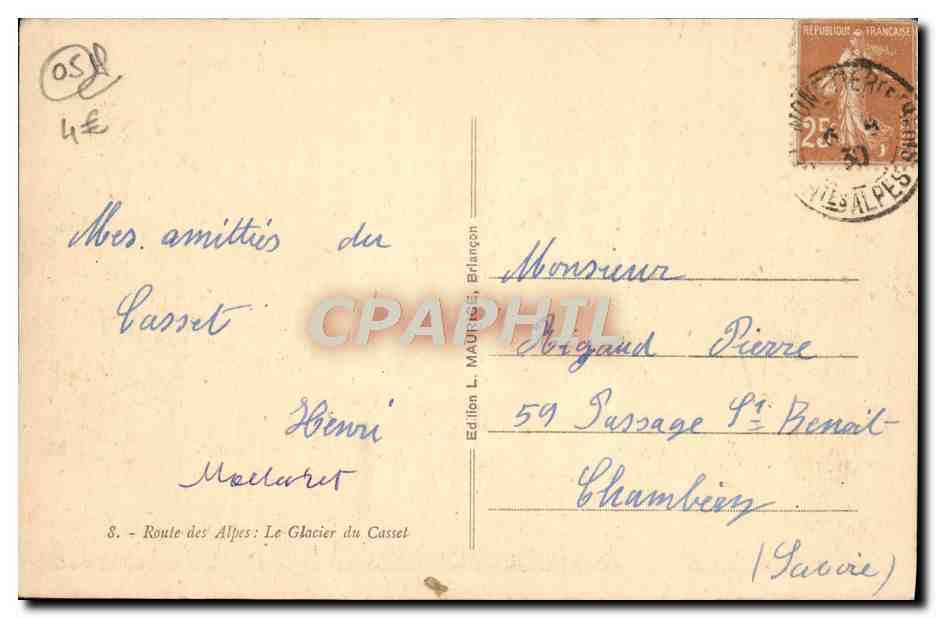 05
4€
REPUBLIQUE FRANÇAISE
25
Htes ALPES
Mes amittiés du
Casset
Henri
8. - Route des Alpes: Le Glacier du Casset
Edition L. MAURICE, Briançon
CPAPHIL
Monsieur
Rigaud Pierre
59 Passage St Benoit
Chambéry
(Savoie)